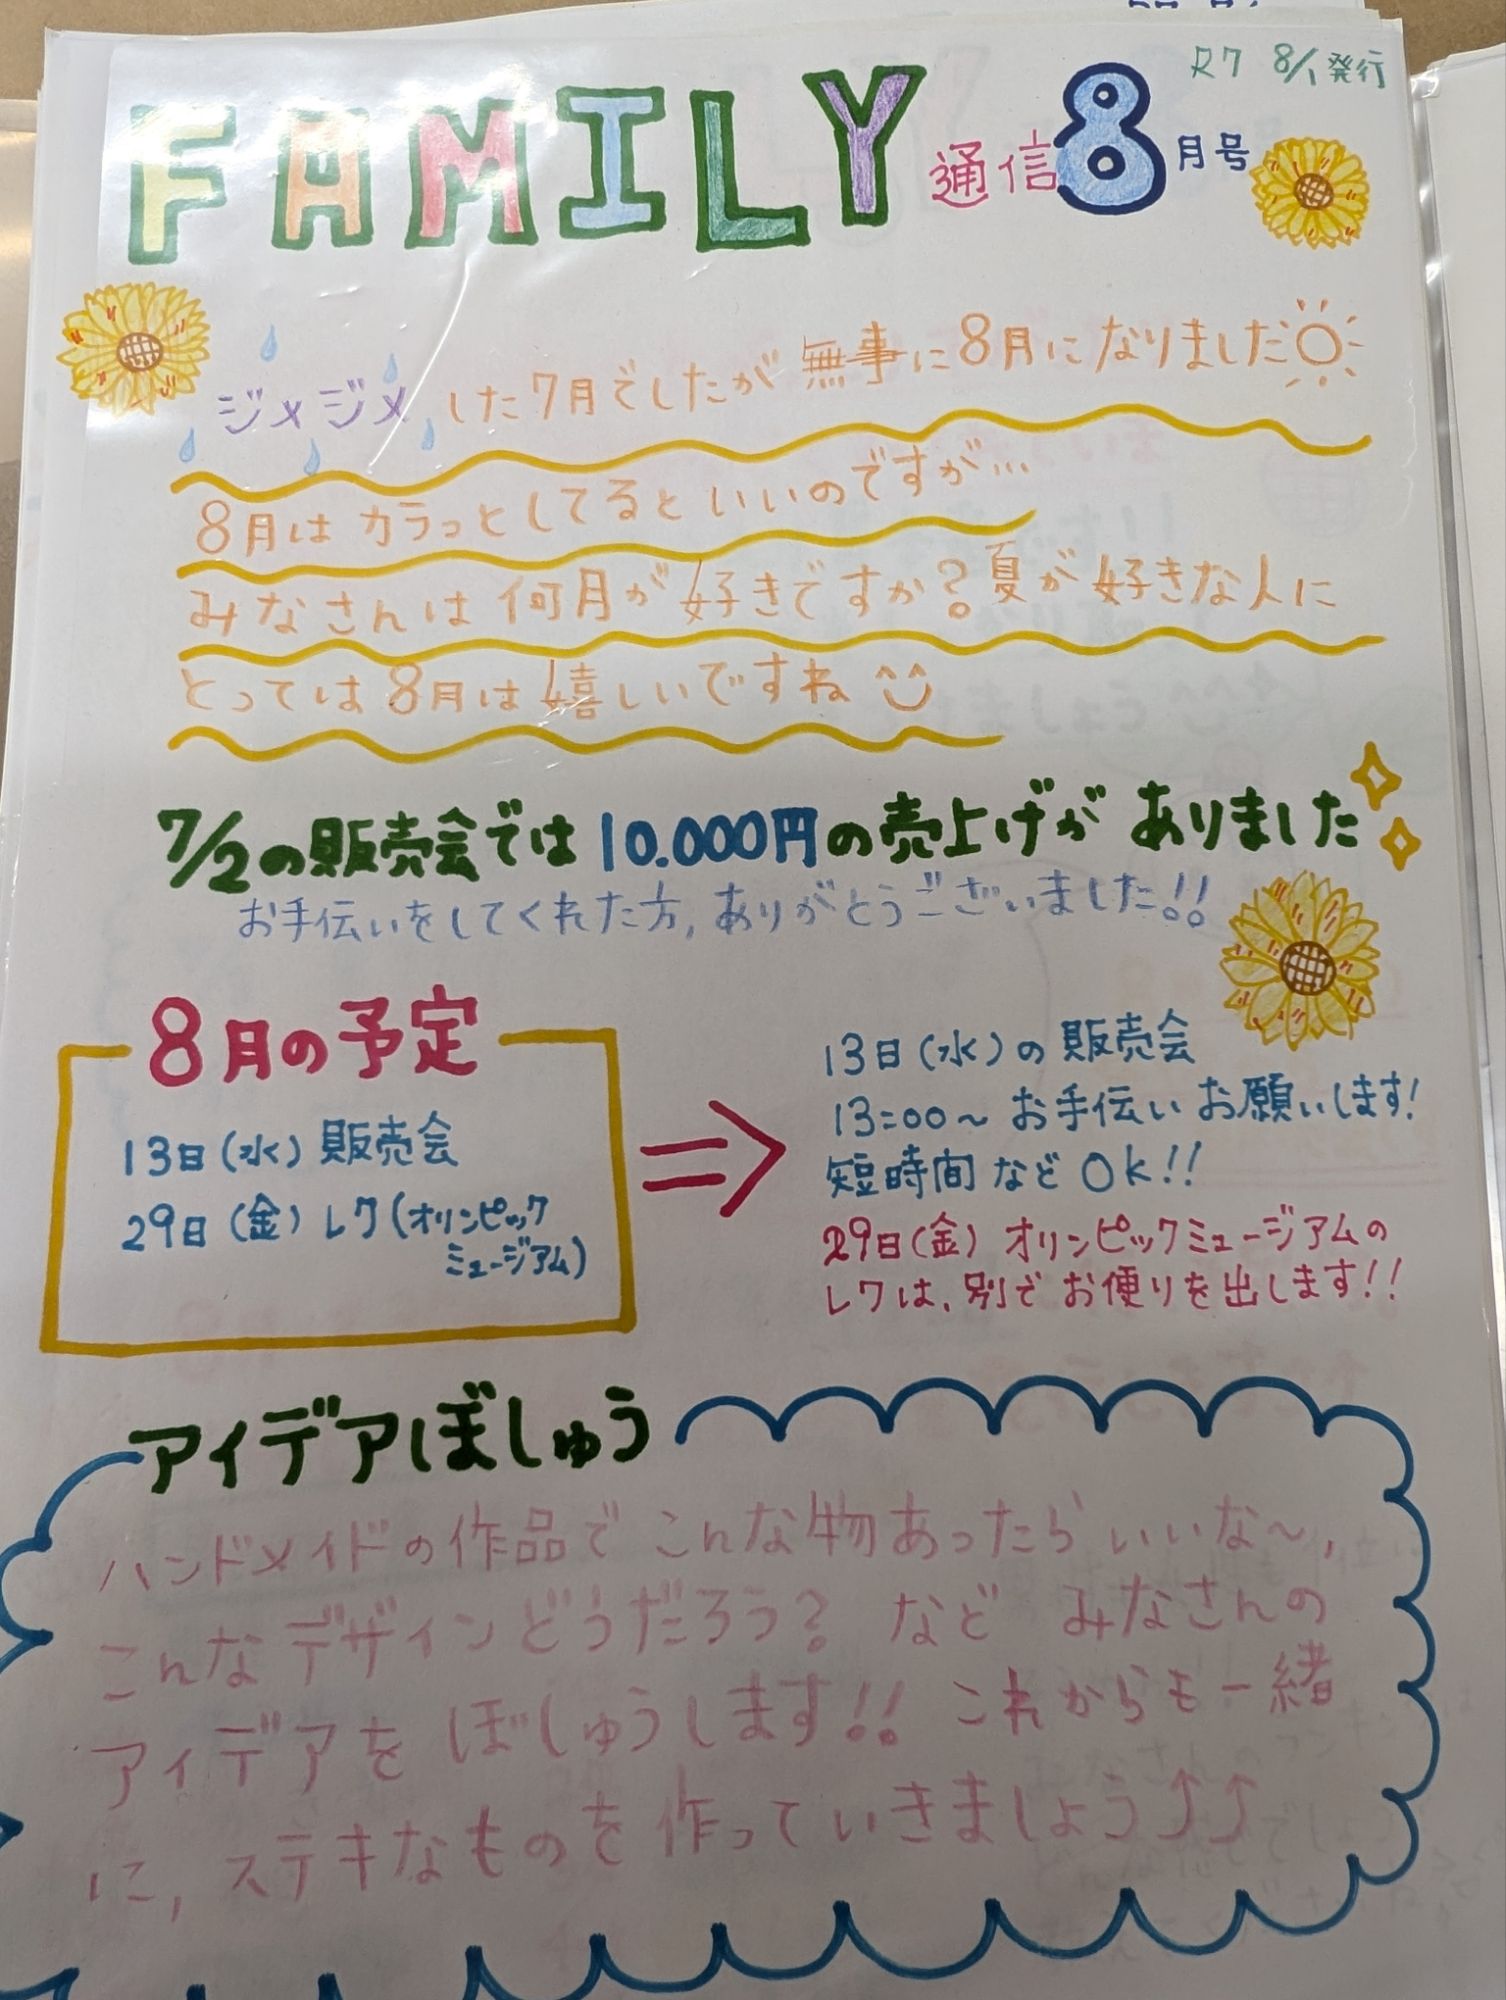 R7 8/1発行
FAMILY 通信 8月号
ジメジメした7月でしたが無事に8月になりました
8月はカラっとしてるといいのですが…
みなさんは何月が好きですか？夏が好きな人に
とっては8月は嬉しいですね
7/2の販売会では10.000円の売上げがありました
お手伝いをしてくれた方,ありがとうございました!!
8月の予定
13日(水)販売会
29日(金)レク(オリンピック
ミュージアム)
13日(水)の販売会
13:00〜お手伝いお願いします!
短時間などOk!!
29日(金)オリンピックミュージアムの
レクは、別でお便りを出します!!
アイデアぼしゅう
ハンドメイドの作品でこんな物あったらいいな〜,
こんなデザインどうだろう？などみなさんの
アイデアをぼしゅうします!!これからも一緒
に,ステキなものを作っていきましょう⤴⤴